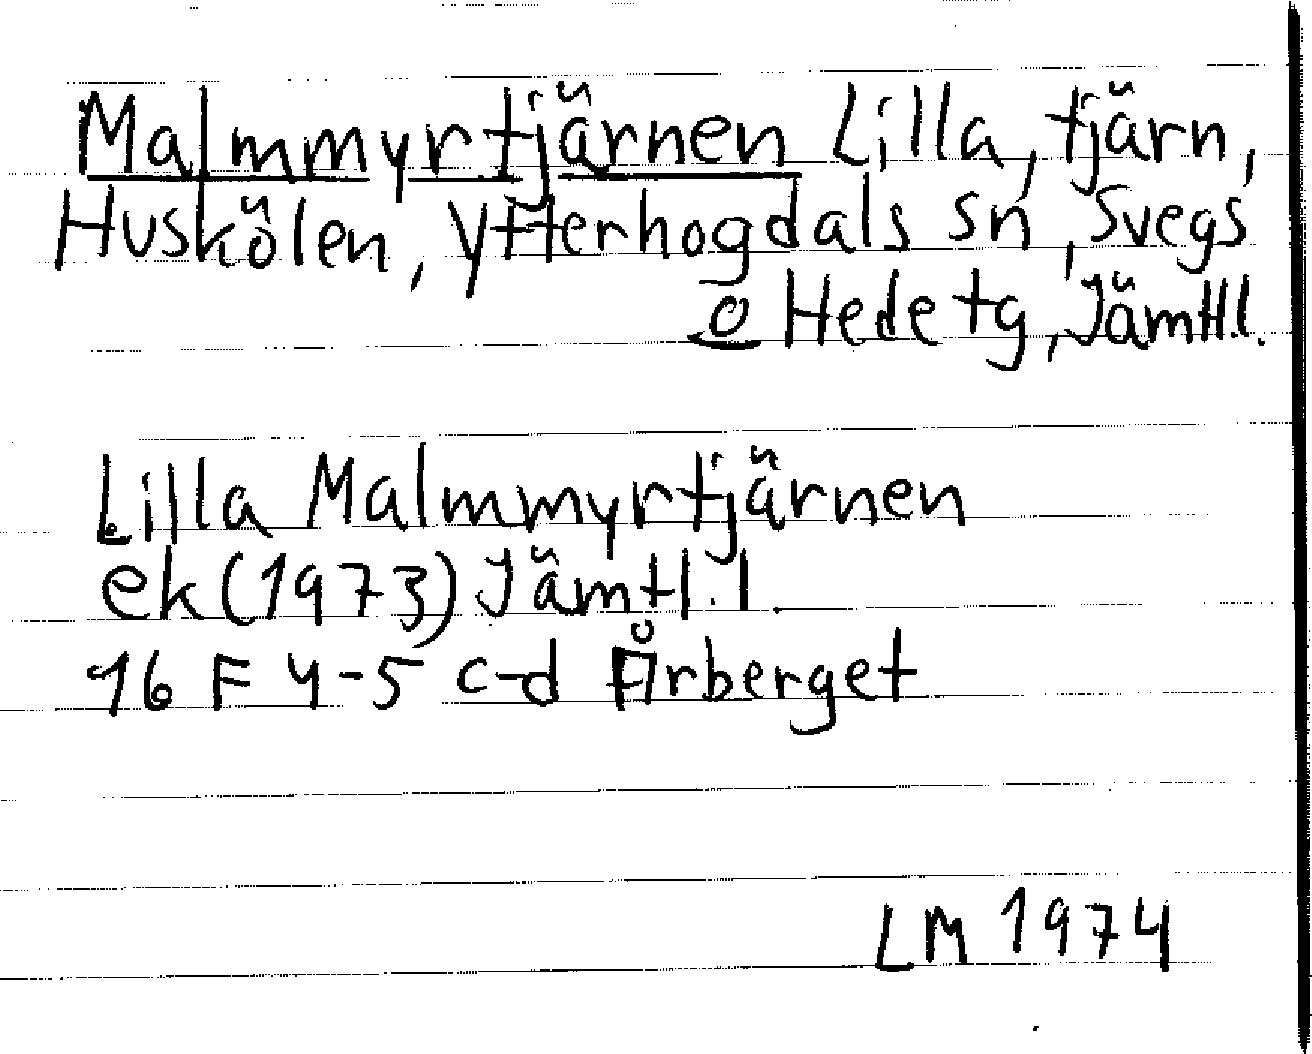 Malmmyrtjärnen Lilla, tjärn,
Huskölen, Ytterhogdals sn, Svegs
o Hede tg, Jämtl.l.
Lilla Malmmyrtjärnen
ek (1973) Jämtl.l.
16 F 4-5 c-d Årberget
LM 1974